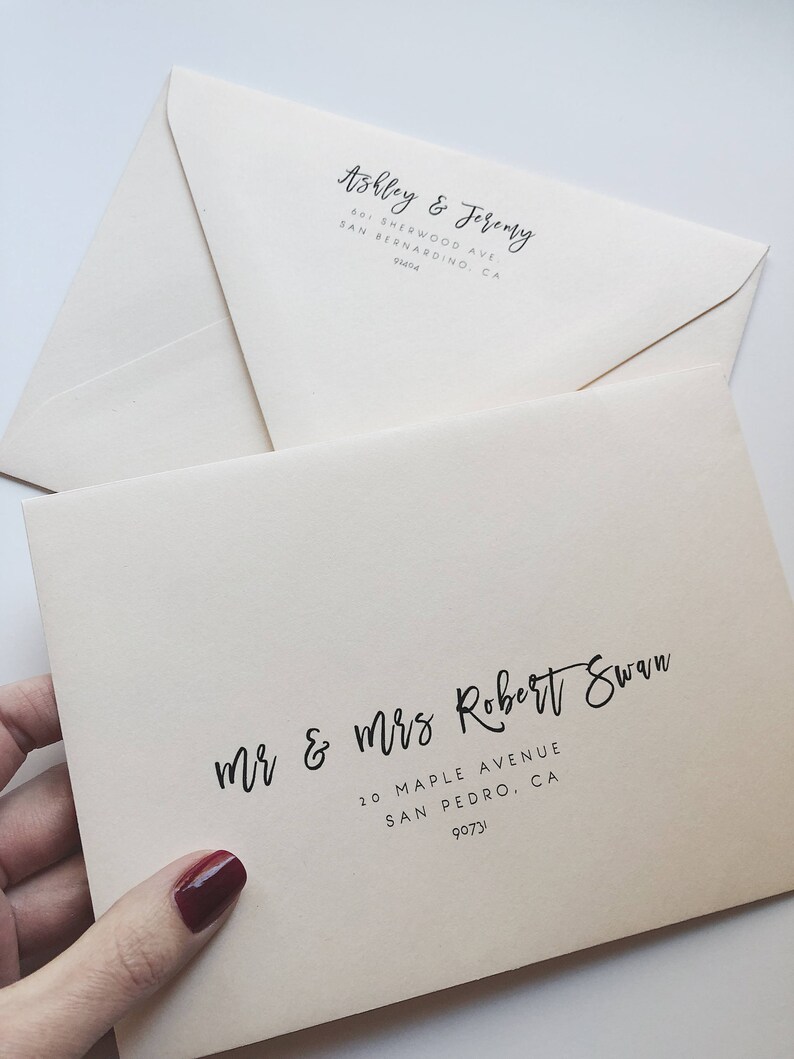 Ashley & Jeremy
601 SHERWOOD AVE.
SAN BERNARDINO, CA
92404
Mr & Mrs Robert Swan
20 MAPLE AVENUE
SAN PEDRO, CA
90731